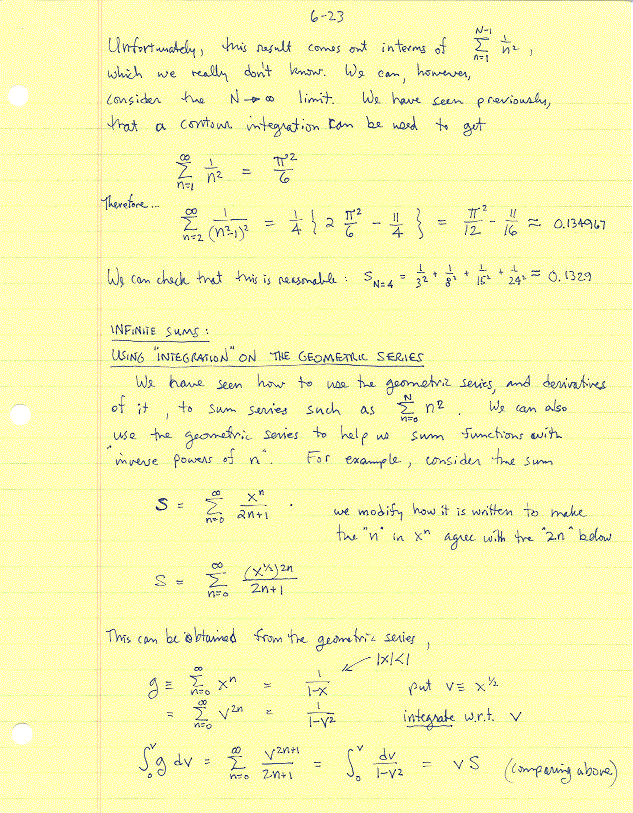 6-23
Unfortunately, this result comes out in terms of ∑_{n=1}^{N-1} 1/n² ,
which we really don't know. We can, however,
consider the N→∞ limit. We have seen previously,
that a contour integration can be used to get
∑_{n=1}^{∞} 1/n² = π²/6
Therefore...
∑_{n=2}^{∞} 1/(n²-1)² = 1/4 { 2 π²/6 - 11/4 } = π²/12 - 11/16 ≈ 0.134967
We can check that this is reasonable : S_{N=4} = 1/3² + 1/8² + 1/15² + 1/24² ≈ 0.1329
INFINITE SUMS :
USING "INTEGRATION" ON THE GEOMETRIC SERIES
We have seen how to use the geometric series, and derivatives
of it , to sum series such as ∑_{n=0}^{N} n² . We can also
use the geometric series to help us sum functions with
"inverse powers of n". For example, consider the sum
S = ∑_{n=0}^{∞} xⁿ/(2n+1) .
we modify how it is written to make
the "n" in xⁿ agree with the "2n" below
S = ∑_{n=0}^{∞} (x^{1/2})^{2n}/(2n+1)
This can be obtained from the geometric series ,
g ≡ ∑_{n=0}^{∞} xⁿ = 1/(1-x) ← |x|<1 put v ≡ x^{1/2}
= ∑_{n=0}^{∞} v^{2n} = 1/(1-v²) integrate w.r.t. v
∫₀^v g dv = ∑_{n=0}^{∞} v^{2n+1}/(2n+1) = ∫₀^v dv/(1-v²) = v S (comparing above)